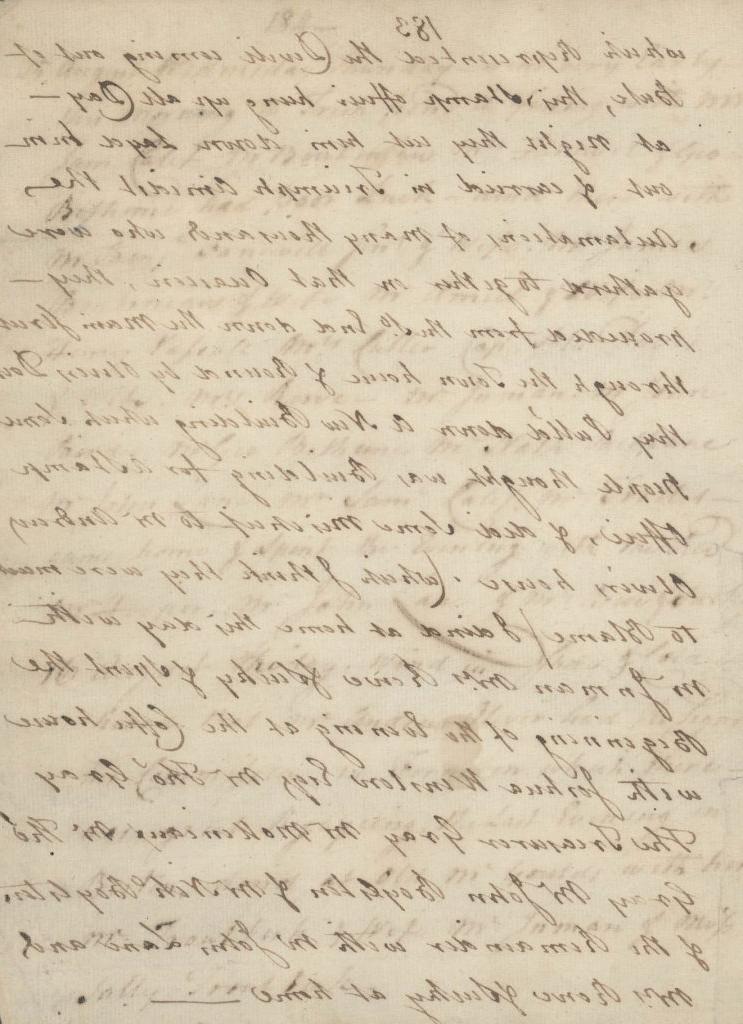 183
which Represented the Devill coming out of —
Bute, this Stamp officer hung up all Day —
at night they cut him down Layd him —
out & carried in Triumph amidst the
Acclamations of many thousands who were
gathered together on that Occasion, they —
proceeded from the So End down the Main Street
through the Town house & Round by Olivers Dock
they Pull'd down a New Building which some
People thought was Building for a Stamp
Office, & did some Mischief to Mr Andrew
Olivers house (which I think they were much
to Blame / I dined at home this day with
Mr Inman Mrs Rowe & Sucky & spent the
Beginning of the Evening at the Coffee house
with Joshua Winslow Esqr Mr Thos Gray
the Treasurer Gray Mr Mollineaux Mr Thos
Gray Mr John Boylston & Mr Nich Boylston
& the Remainder with Mr John Lane and
Mrs Rowe & Sucky at home —